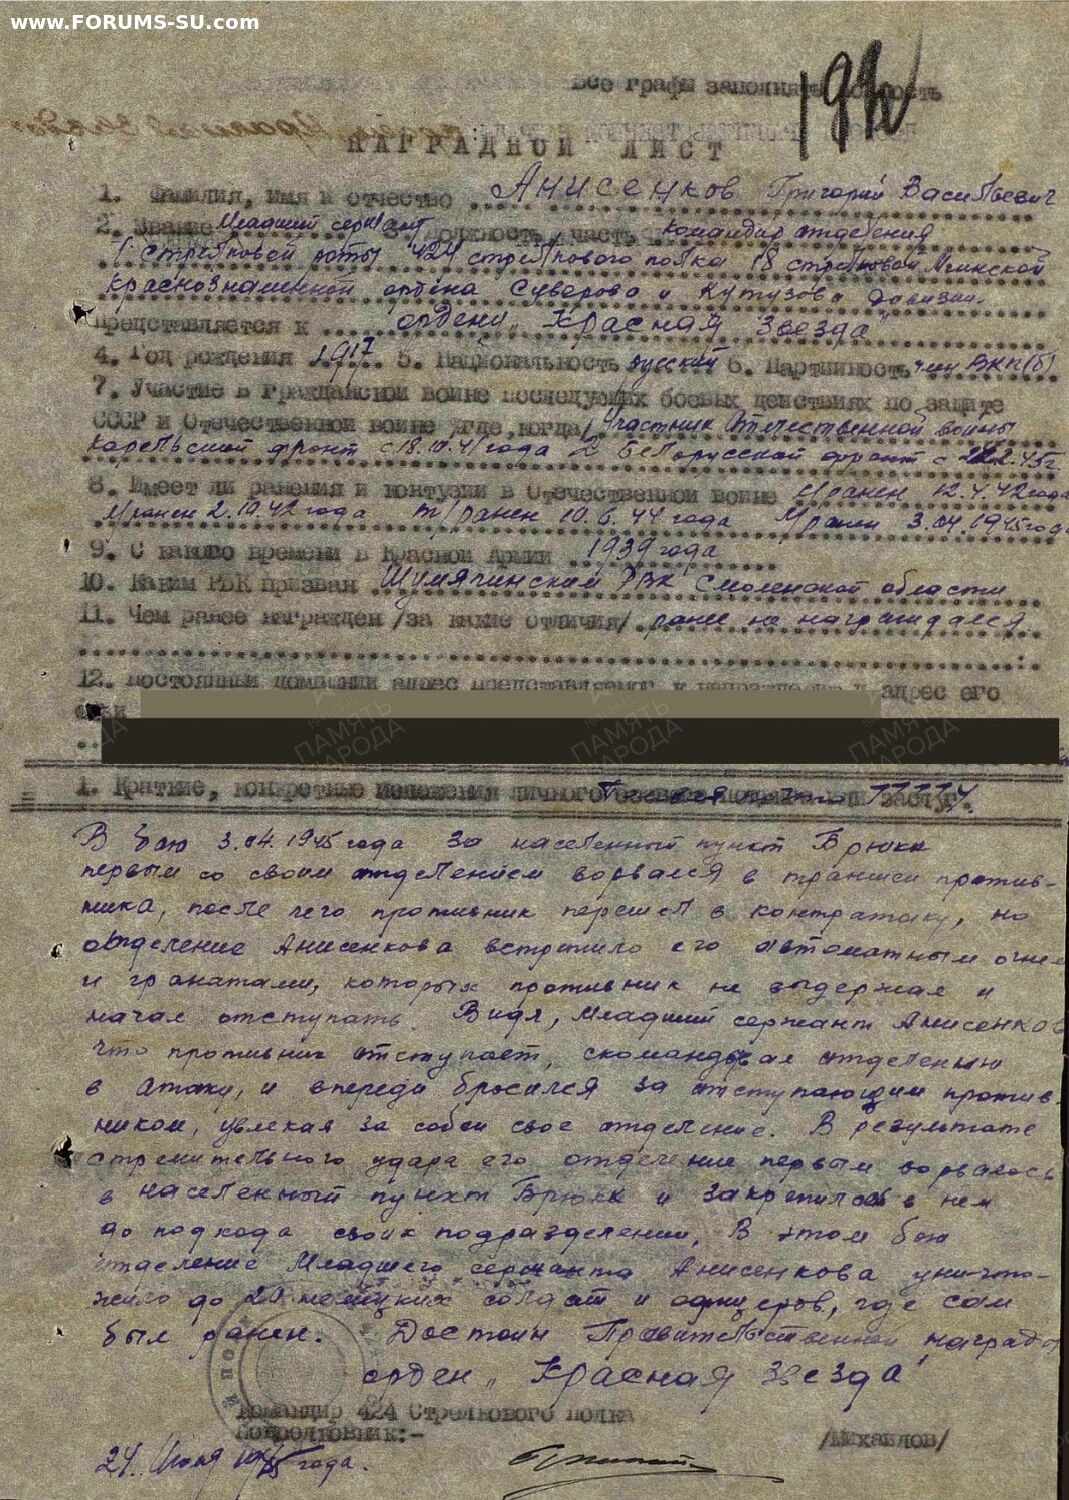 www.FORUMS-SU.com
Все графы заполнять
НАГРАДНОЙ ЛИСТ
1. Фамилия, имя и отчество Анисенков Григорий Васильевич
2. Звание Младший сержант должность, часть командир отделения
1 стрелковой роты 424 стрелкового полка 18 стрелковой Мгинской
Краснознаменной ордена Суворова и Кутузова дивизии.
Представляется к ордену „Красная Звезда"
4. Год рождения 1917 5. Национальность русский 6. Партийность член ВКП(б)
7. Участие в гражданской войне последующих боевых действиях по защите
СССР и Отечественной войне /где, когда/ Участник Отечественной войны
Карельский фронт с 18.10.41 года 2 Белорусский фронт с 45г
8. Имеет ли ранения и контузии в Отечественной войне ранен 12.4.42 года
ранен 2.10.42 года т/ранен 10.6.44 года ранен 3.04.1945 года
9. С какого времени в Красной Армии 1939 года
10. Каким РВК призван Шумячинским РВК Смоленской области
11. Чем ранее награжден /за какие отличия/ ранее не награждался
12. Постоянный домашний адрес представляемого к награждению и адрес его
ПАМЯТЬ НАРОДА
ПАМЯТЬ НАРОДА
ПАМЯТЬ НАРОДА
1. Краткие, конкретные изложения личного заслуг.
В бою 3.04.1945 года за населенный пункт Брюкк
первым со своим отделением ворвался в траншеи против-
ника, после чего противник перешел в контратаку, но
отделение Анисенкова встретило его автоматным огнем
и гранатами, которых противник не выдержал и
начал отступать. Видя, Младший сержант Анисенков
что противник отступает, скомандовал отделению
в атаку, и впереди бросился за отступающим против-
ником, увлекая за собой свое отделение. В результате
стремительного удара его отделение первым ворвалось
в населенный пункт Брюкк и закрепилось в нем
до подхода своих подразделений. В этом бою
отделение Младшего сержанта Анисенкова уничто-
жило до 20 немецких солдат и офицеров, где сам
был ранен. Достоин Правительственной награды
орден „Красная Звезда"
Командир 424 Стрелкового полка
Подполковник:- /Михайлов/
24. Июня 1945 года.